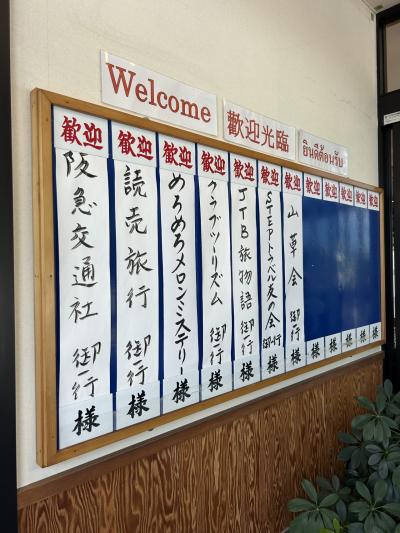 Welcome
歡迎光臨
ยินดีต้อนรับ
歓迎 阪急交通社 御一行 様
歓迎 読売旅行 御一行 様
歓迎 めろめろメロンミステリー 様
歓迎 クラブツーリズム 御一行 様
歓迎 JTB旅物語 御一行 様
歓迎 STEPトラベル友の会 御一行 様
歓迎 山草会 御一行 様
歓迎 様
歓迎 様
歓迎 様
歓迎 様
歓迎 様